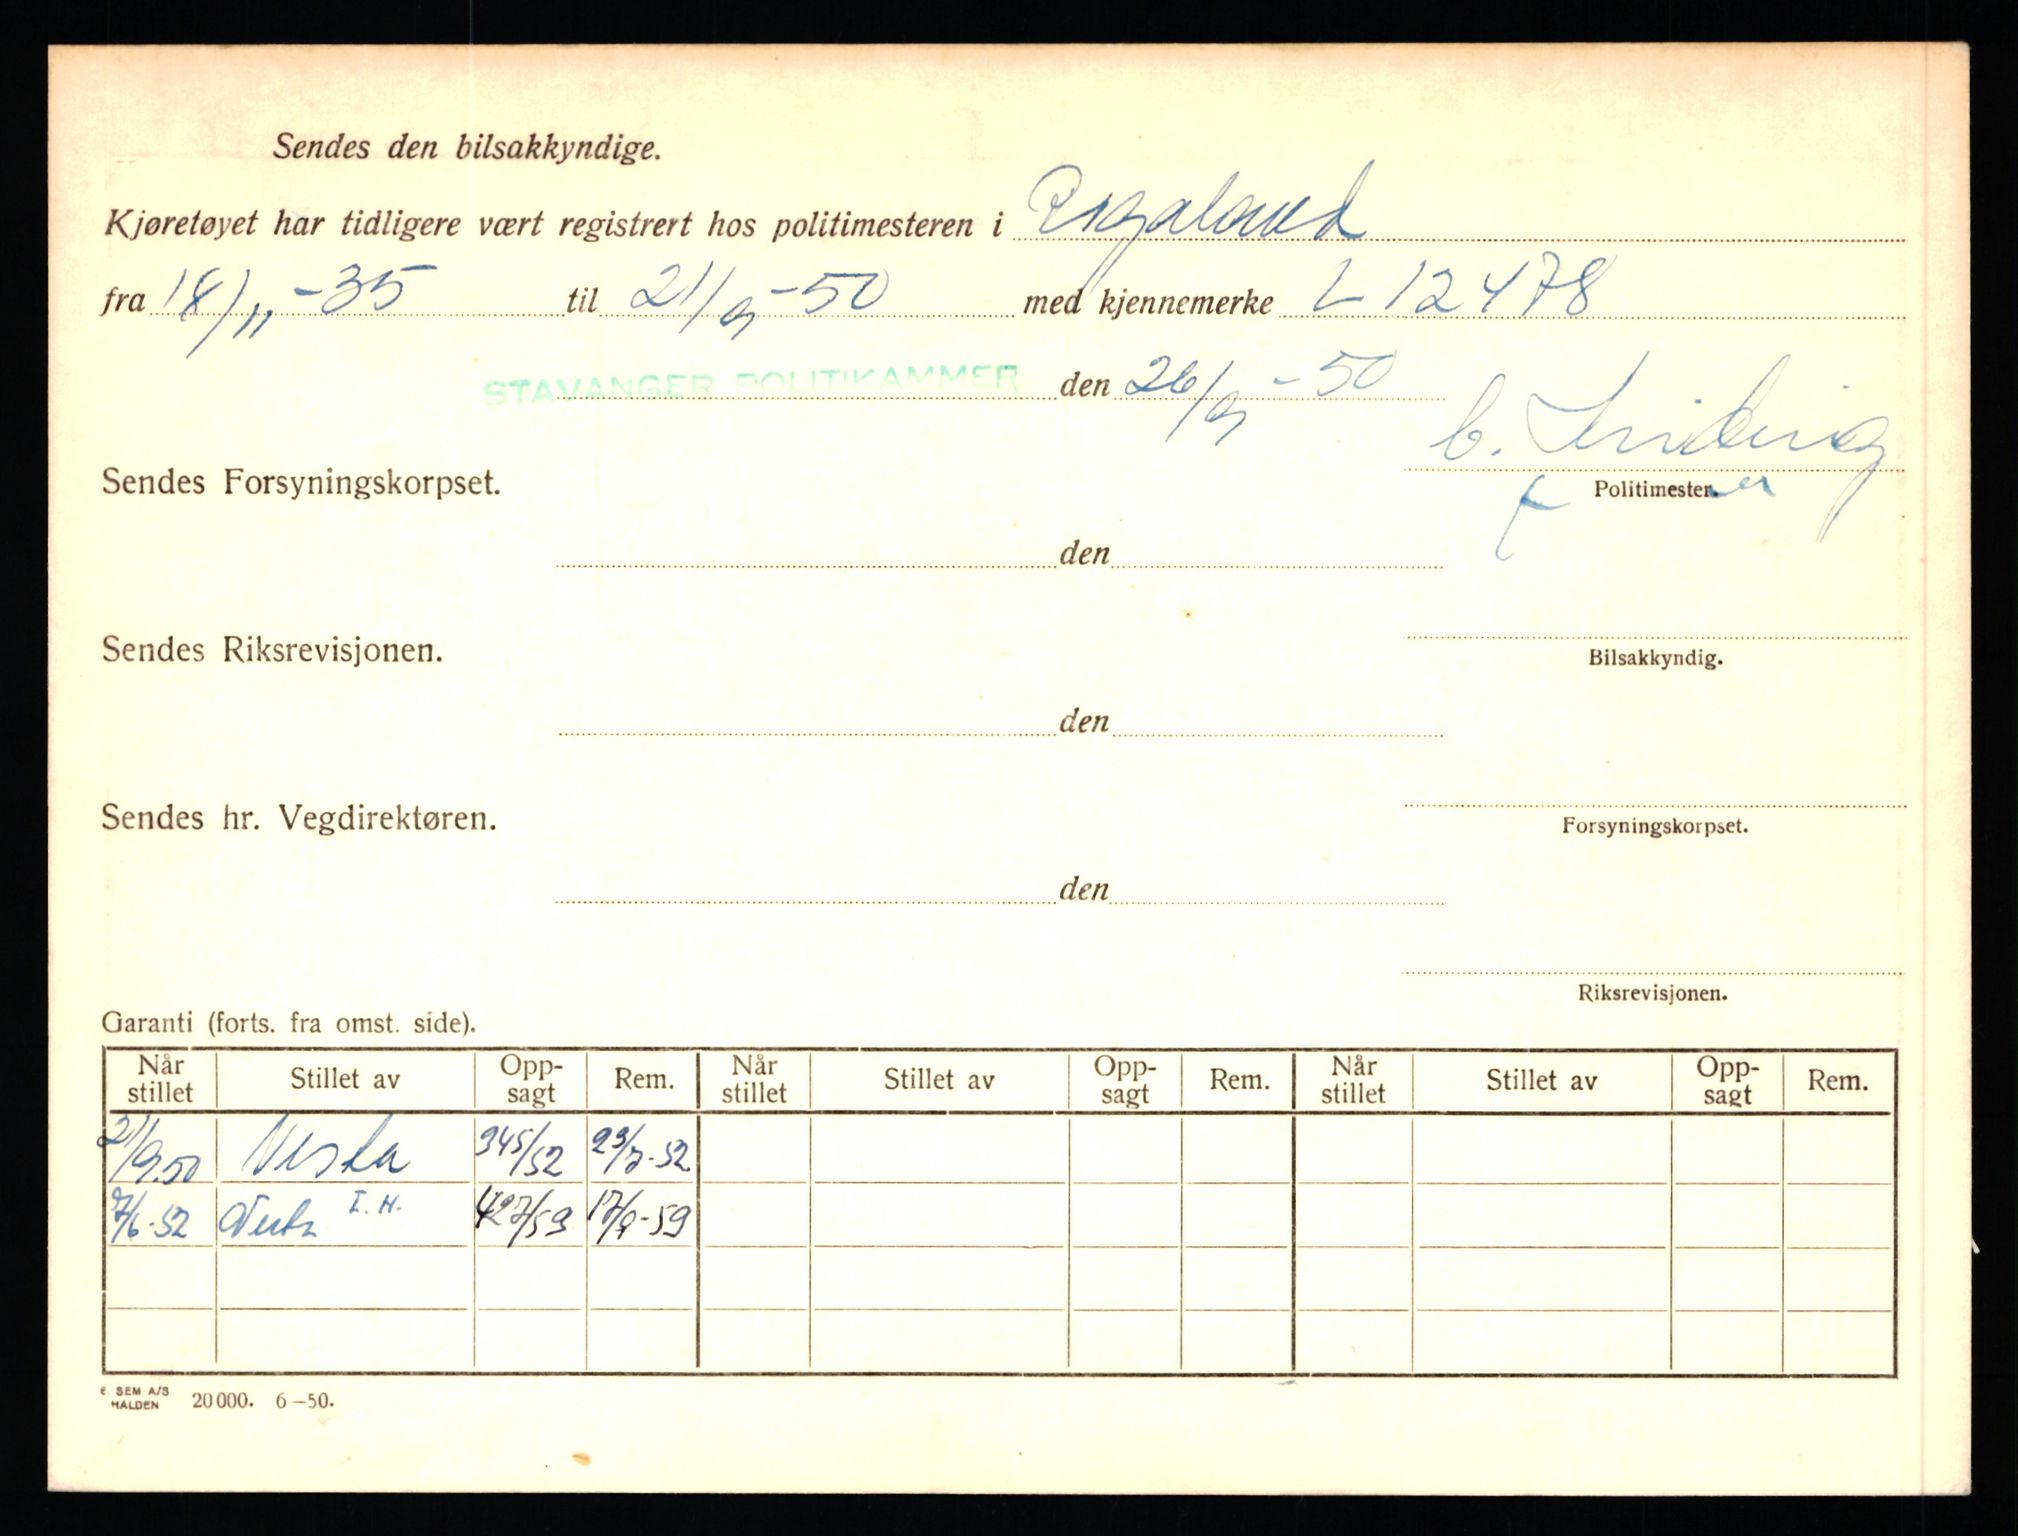 Sendes den bilsakkyndige.
Kjøretøyet har tidligere vært registrert hos politimesteren i Rogaland
fra 18/11-35 til 21/9-50 med kjennemerke L 12478
STAVANGER POLITIKAMMER den 26/9-50
Sendes Forsyningskorpset.
Politimester.
den
Sendes Riksrevisjonen.
Bilsakkyndig.
den
Sendes hr. Vegdirektøren.
Forsyningskorpset.
den
Riksrevisjonen.
Garanti (forts. fra omst. side).
Når stillet Stillet av Opp-sagt Rem. Når stillet Stillet av Opp-sagt Rem. Når stillet Stillet av Opp-sagt Rem.
21/9.50 Vesta 345/52 23/7-52
7/6-52 Vesta I.H. 427/59 17/9-59
E. SEM A/S
HALDEN 20000. 6-50.